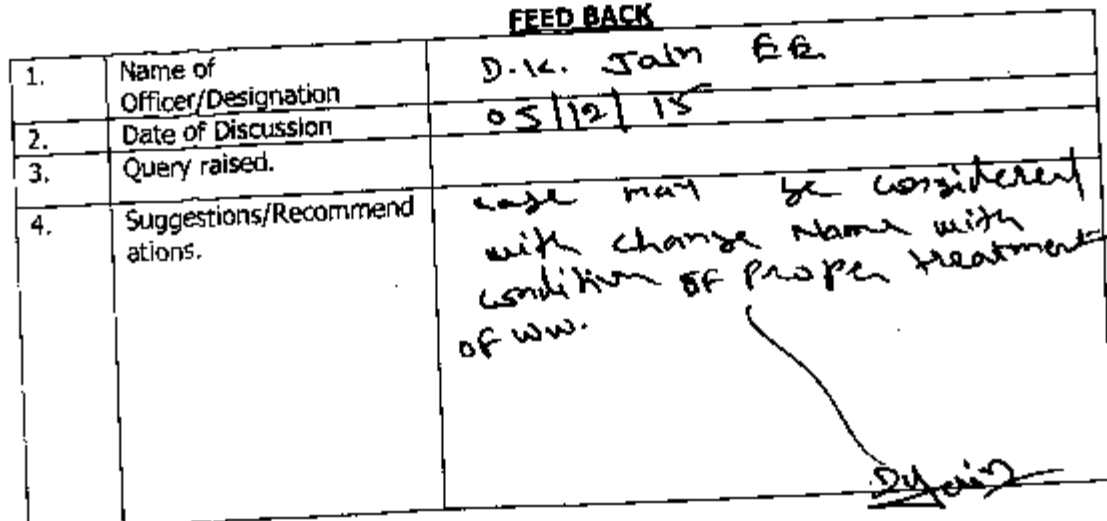 FEED BACK
1. Name of D.K. Jain EE
Officer/Designation
2. Date of Discussion 05/12/15
3. Query raised.
4. Suggestions/Recommend case may be considered
ations. with change Name with
condition of proper treatment
of WW.
DKJain